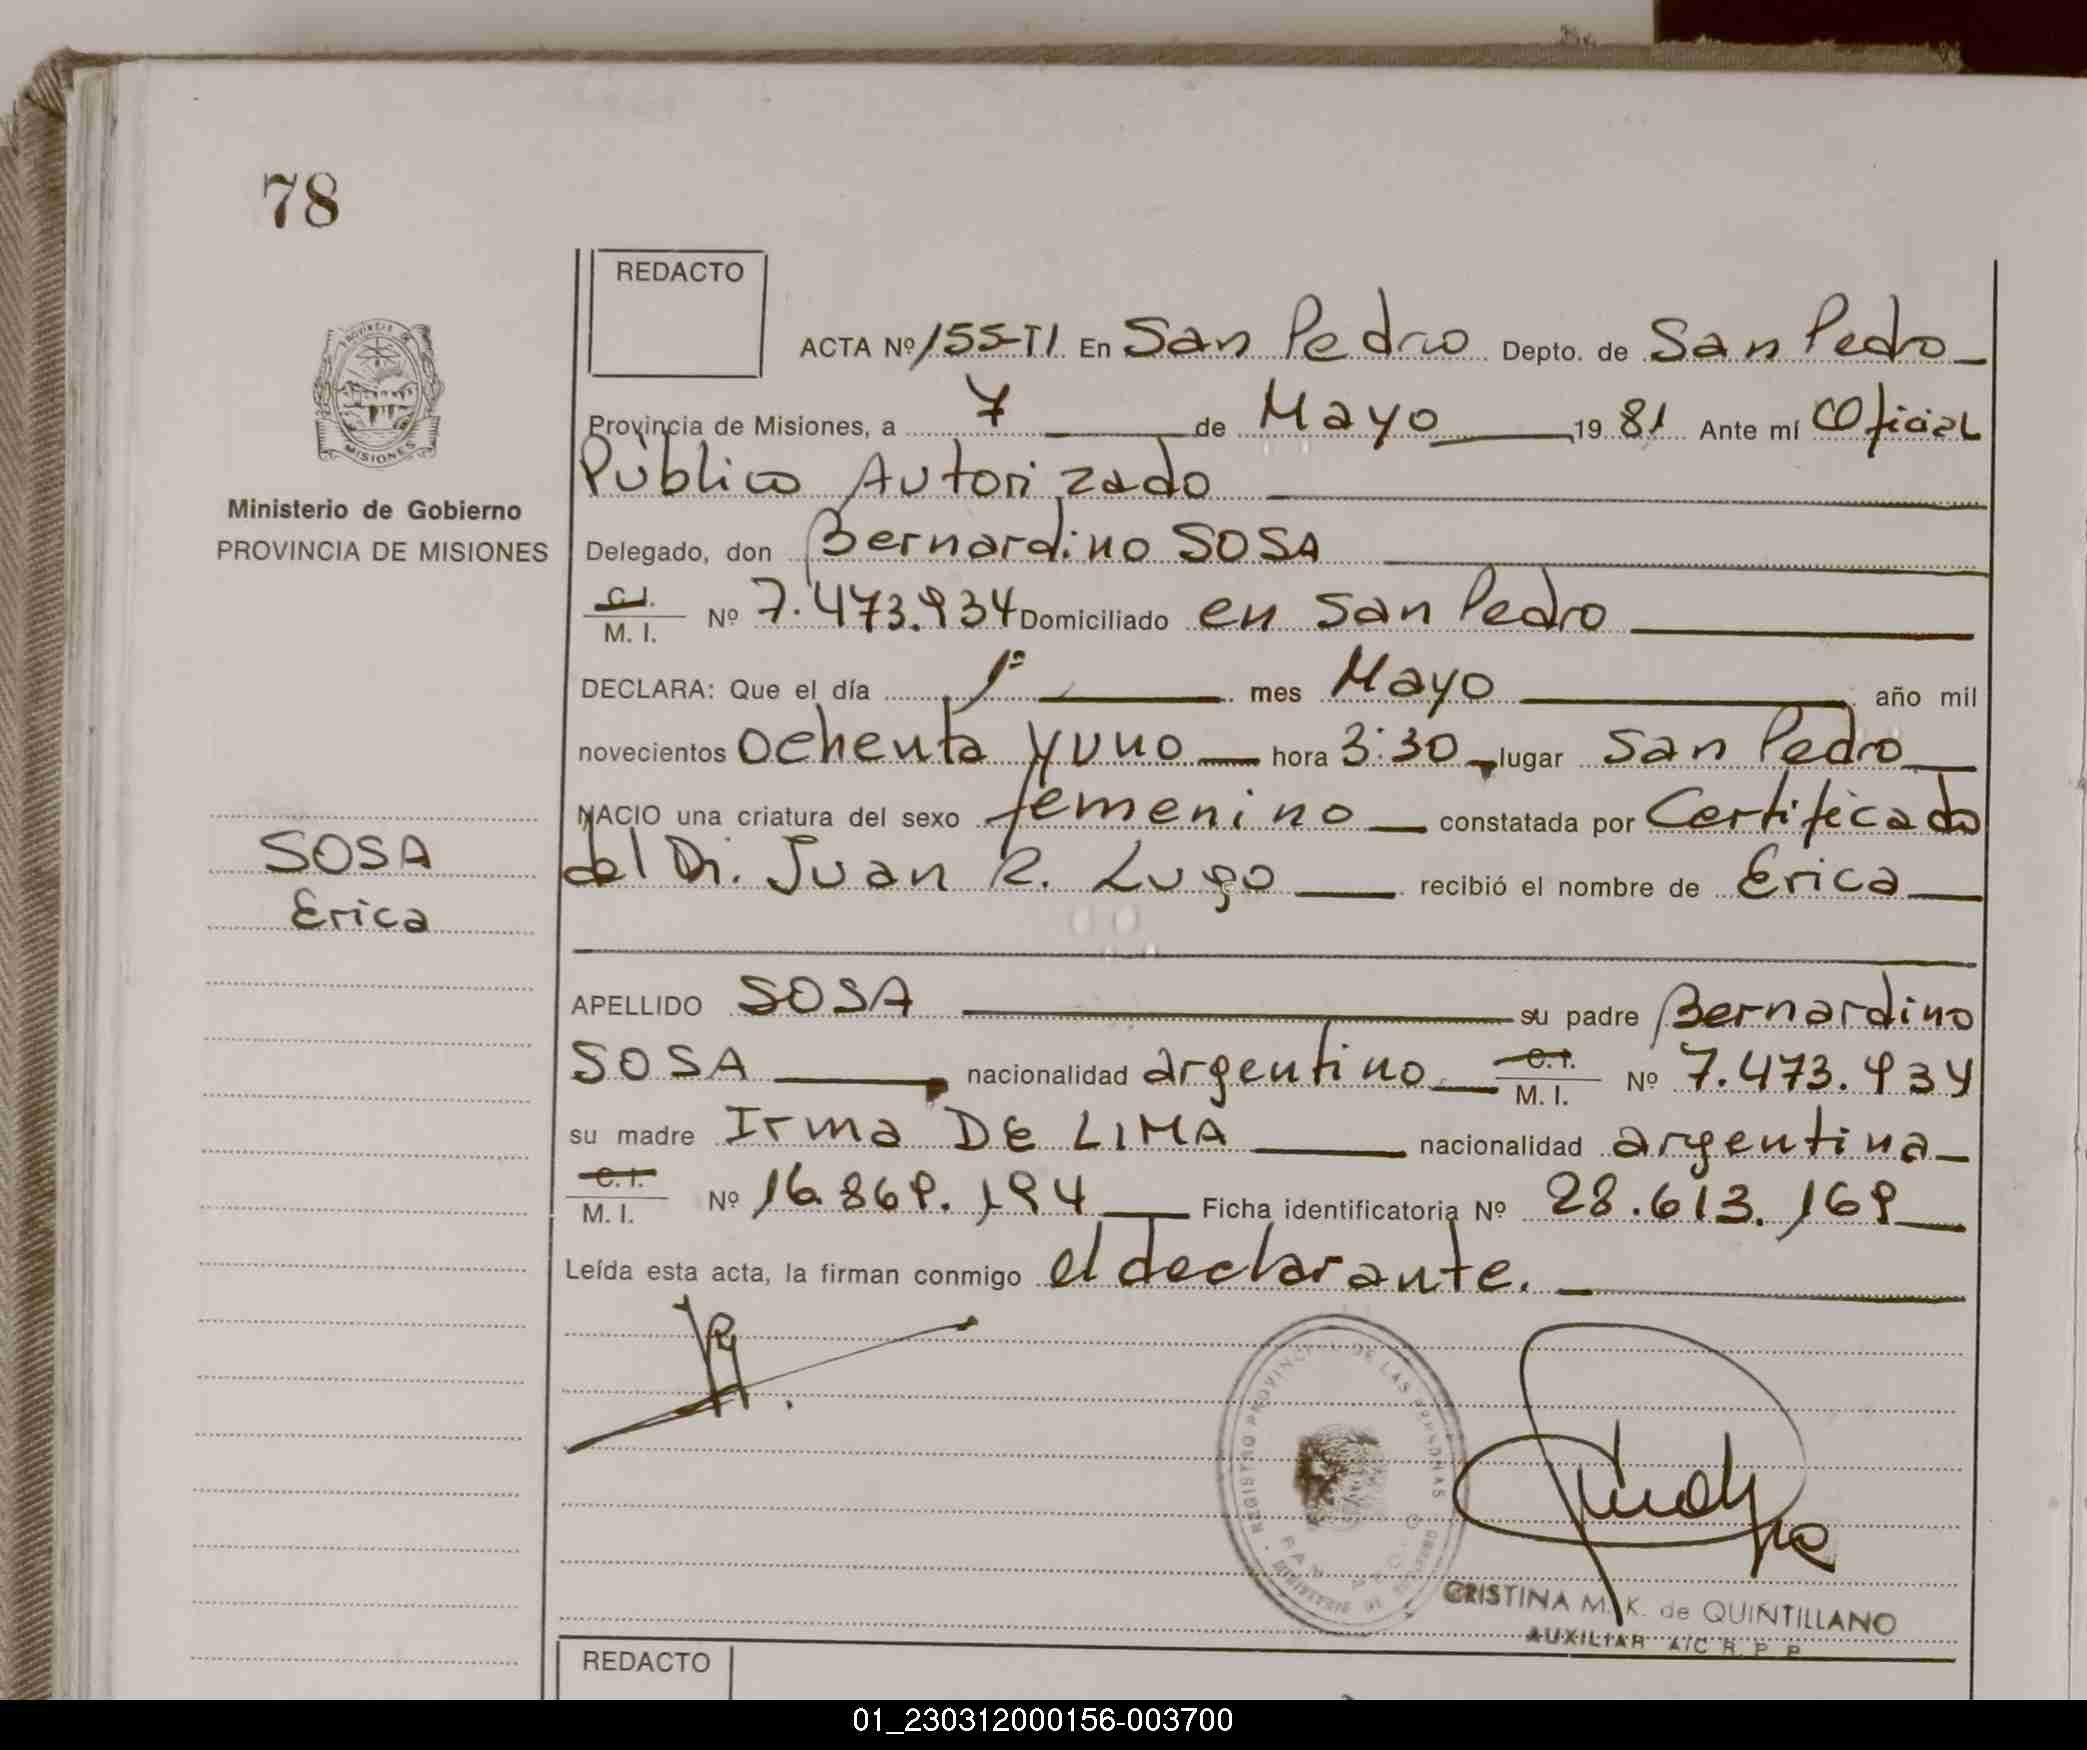 78
REDACTO
ACTA Nº 155-TI En San Pedro Depto. de San Pedro
Provincia de Misiones, a 7 de Mayo 1981 Ante mí Oficial
Público Autorizado
Ministerio de Gobierno
PROVINCIA DE MISIONES
Delegado, don Bernardino SOSA
C.I.
M. I. Nº 7.473.934 Domiciliado en San Pedro
DECLARA: Que el día 1º mes Mayo año mil
novecientos ochenta y uno hora 3:30 lugar San Pedro
NACIO una criatura del sexo femenino constatada por Certificado
del Dr. Juan R. Lugo recibió el nombre de Erica
SOSA
Erica
APELLIDO SOSA su padre Bernardino
SOSA nacionalidad argentino C.I. M. I. Nº 7.473.934
su madre Irma DE LIMA nacionalidad argentina
C.I.
M. I. Nº 16.869.194 Ficha identificatoria Nº 28.613.169
Leída esta acta, la firman conmigo el declarante.
REGISTRO PROVINCIAL DE LAS PERSONAS
CRISTINA M. K. de QUINTILLANO
AUXILIAR A/C R. P. P.
REDACTO
01_230312000156-003700